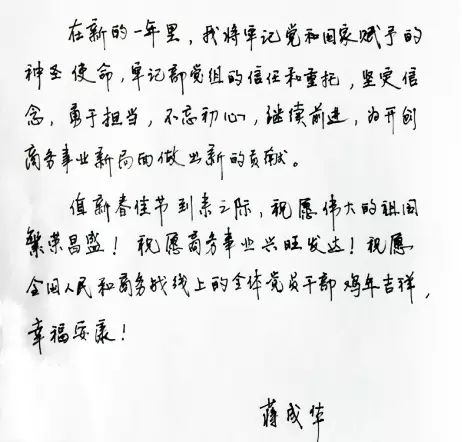 在新的一年里，我将牢记党和国家赋予的
神圣使命，牢记部党组的信任和重托，坚定信
念，勇于担当，不忘初心，继续前进，为开创
商务事业新局面做出新的贡献。
值新春佳节到来之际，祝愿伟大的祖国
繁荣昌盛！祝愿商务事业兴旺发达！祝愿
全国人民和商务战线上的全体党员干部鸡年吉祥，
幸福安康！
蒋成华